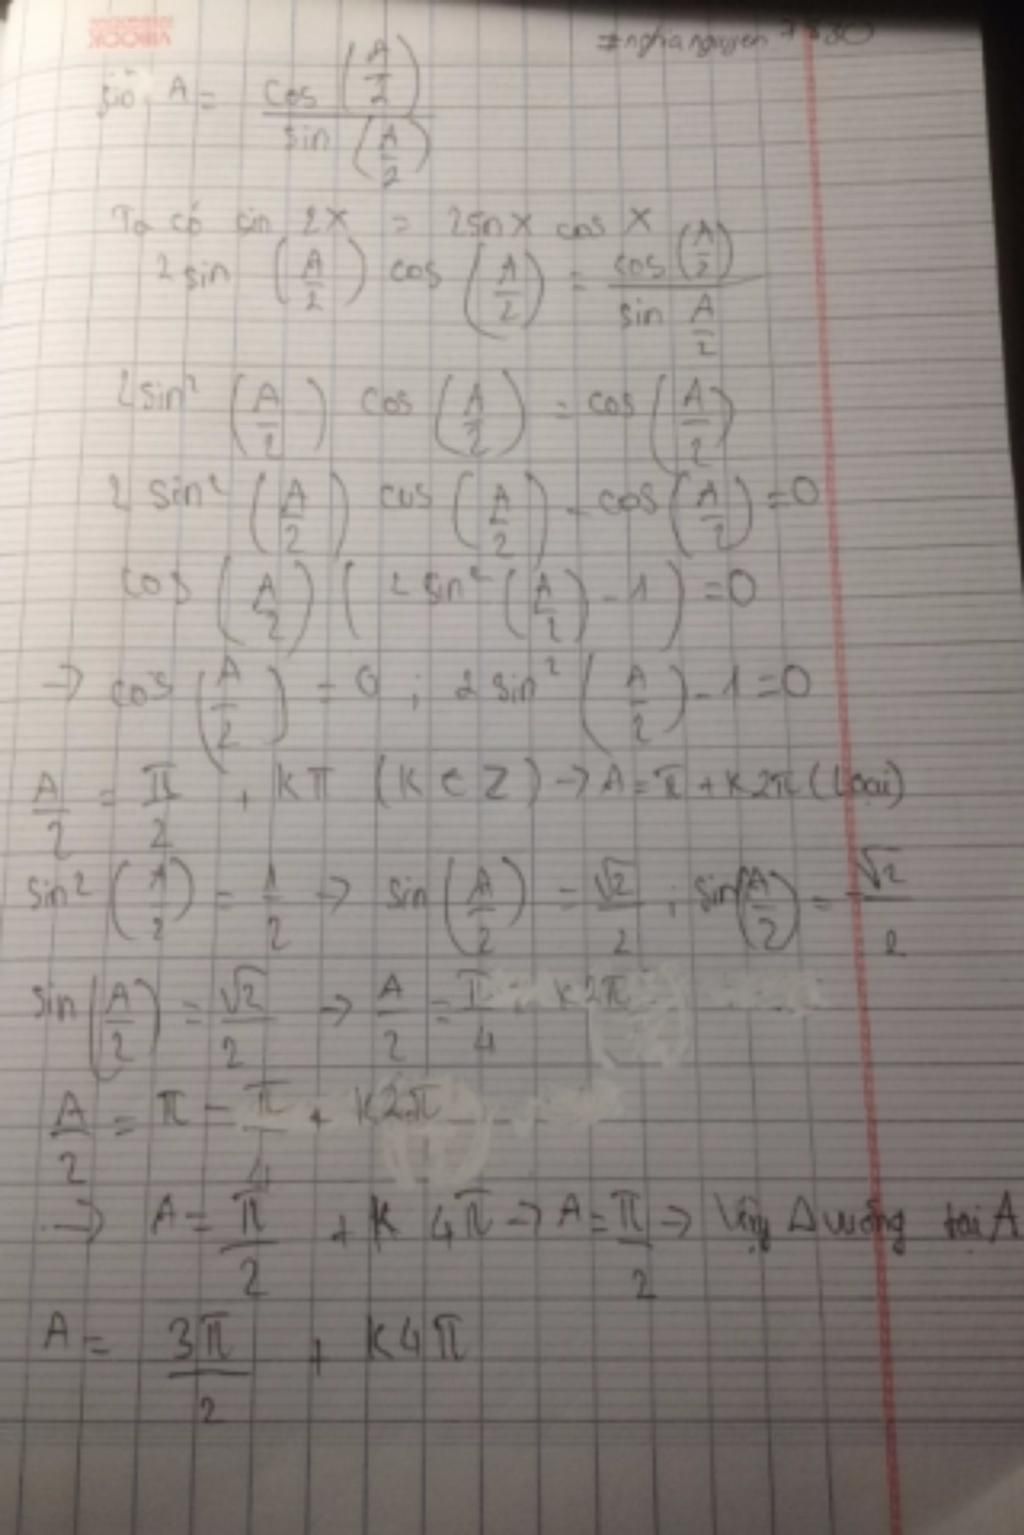 VIBOOK
#nghianguyen
sin A = cos (A/2) / sin (A/2)
Ta có sin 2x = 2sinx cos x
2 sin (A/2) cos (A/2) = cos (A/2) / sin A/2
2sin² (A/2) cos (A/2) = cos (A/2)
2 sin² (A/2) cos (A/2) - cos (A/2) = 0
cos (A/2) ( 2 sin² (A/2) - 1 ) = 0
→ cos (A/2) = 0 ; 2 sin² (A/2) - 1 = 0
A/2 = π/2 + kπ (k ∈ Z) → A = π + k2π (Loại)
sin² (A/2) = 1/2 → sin (A/2) = √2/2 ; sin(A/2) = -√2/2
sin (A/2) = √2/2 → A/2 = π/4 + k2π
A/2 = π - π/4 + k2π
→ A = π/2 + k4π → A = π/2 → Vậy Δ vuông tại A
A = 3π/2 + k4π